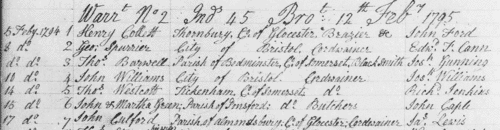 Warrt No 2 Ind 45 Brot 12th Feby 1795
5 Feby 1794 1 Henry Collett Thornbury, Co of Glocester Brazier &c John Ford
8 do 2 Geo: Spurrier City of Bristol Cordwainer Edwd T. Cann
do do 3 Thos Barwell Parish of Bedminster, C. of Somerset, Black Smith Jos: Gunning
10 do 4 John Williams City of Bristol Cordwainer Jos: Williams
14 do 5 Thos Westcott Tickenham, C. of Somerset do Richd Jenkins
15 do 6 John & Martha Green; Parish of Pensford; do Butchers John Cable
17 do 7 John Culford Parish of Almondsbury, C. of Glocester; Cordwainer Jas: Lewis